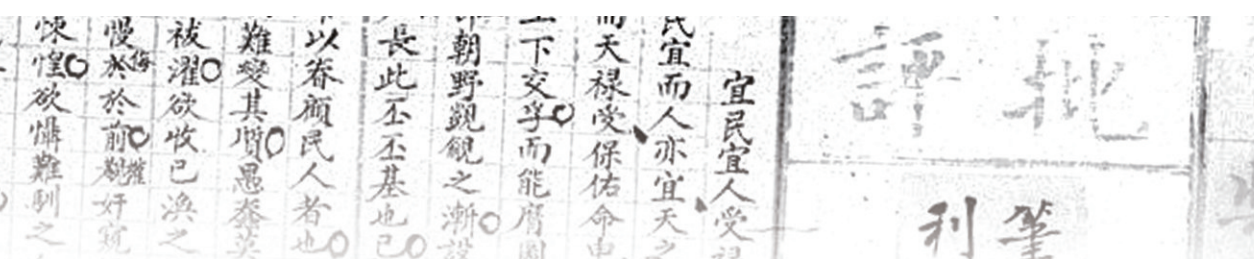 批評
筆利
宜民宜人受
民宜而人亦宜天之
而天祿受保佑命申
上下交孚而能膺圖
朝野觀覩之漸設
長此丕丕基也已
以眷顧民人者也
難變其質愚
祓濯欲收已渙之
慢於侮於前觀奸窺
悚惶欲懾難馴之